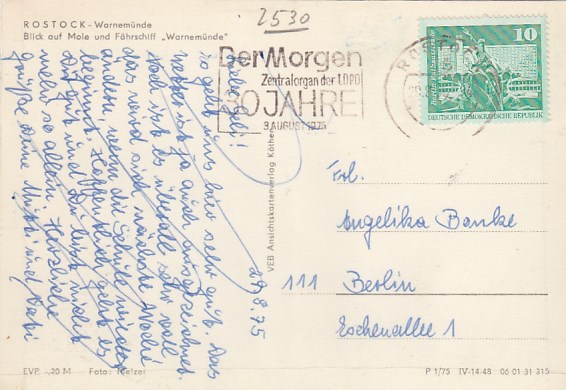 ROSTOCK - Warnemünde
Blick auf Mole und Fährschiff „Warnemünde"
2530
Der Morgen
Zentralorgan der LDPD
30 JAHRE
3. AUGUST 1975
10
DEUTSCHE DEMOKRATISCHE REPUBLIK
Liebe
so geht uns hier sehr gut. Das
Wetter ist ja auch ausgezeichnet.
Nur ist es überall sehr voll
das wird sich nächste Woche
ändern, wenn die Schule wieder
beginnt. Hoffentlich geht es
Dir gut und Du bist nicht
mehr so allein. Herzliche
Grüße Deine Mutti und
29.8.75
VEB Ansichtskartenverlag Köthen
Frl.
Angelika Banke
111 Berlin
Eschenallee 1
EVP -,20 M Foto:
P 1/75 IV-14-48 06 01 31 315